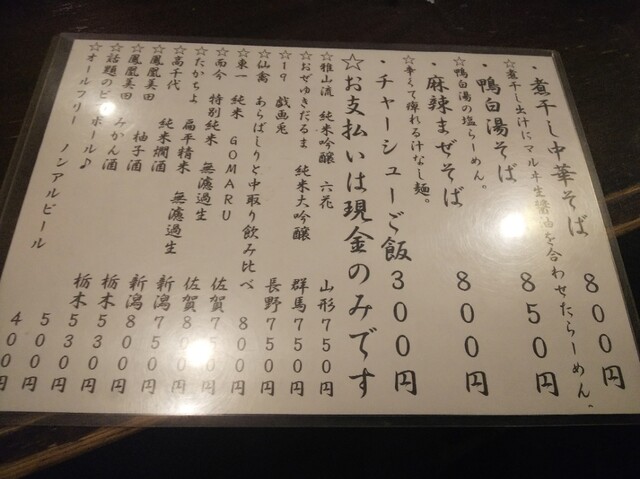 ・煮干し中華そば 800円
☆煮干し出汁にマルキ生醤油を合わせたらーめん。
・鴨白湯そば 850円
☆鴨白湯の塩らーめん。
・麻辣まぜそば 800円
☆辛くて痺れる汁なし麺。
・チャーシューご飯 300円
☆お支払いは現金のみです
☆雅山流 純米吟醸 六花 山形 750円
☆おぜゆきだるま 純米大吟醸 群馬 750円
☆19 戯画兎 長野 750円
☆仙禽 あらばしりと中取り飲み比べ 800円
☆東一 純米 GOMARU 佐賀 750円
☆而今 特別純米 無濾過生
☆たかちよ 扁平精米 無濾過生 800円
☆高千代 純米燗酒 新潟 750円
☆鳳凰美田 柚子酒 800円
☆鳳凰美田 みかん酒 栃木 530円
☆話題のビ ボール♪ 530円
☆オールフリー ノンアルビール 500円
400円